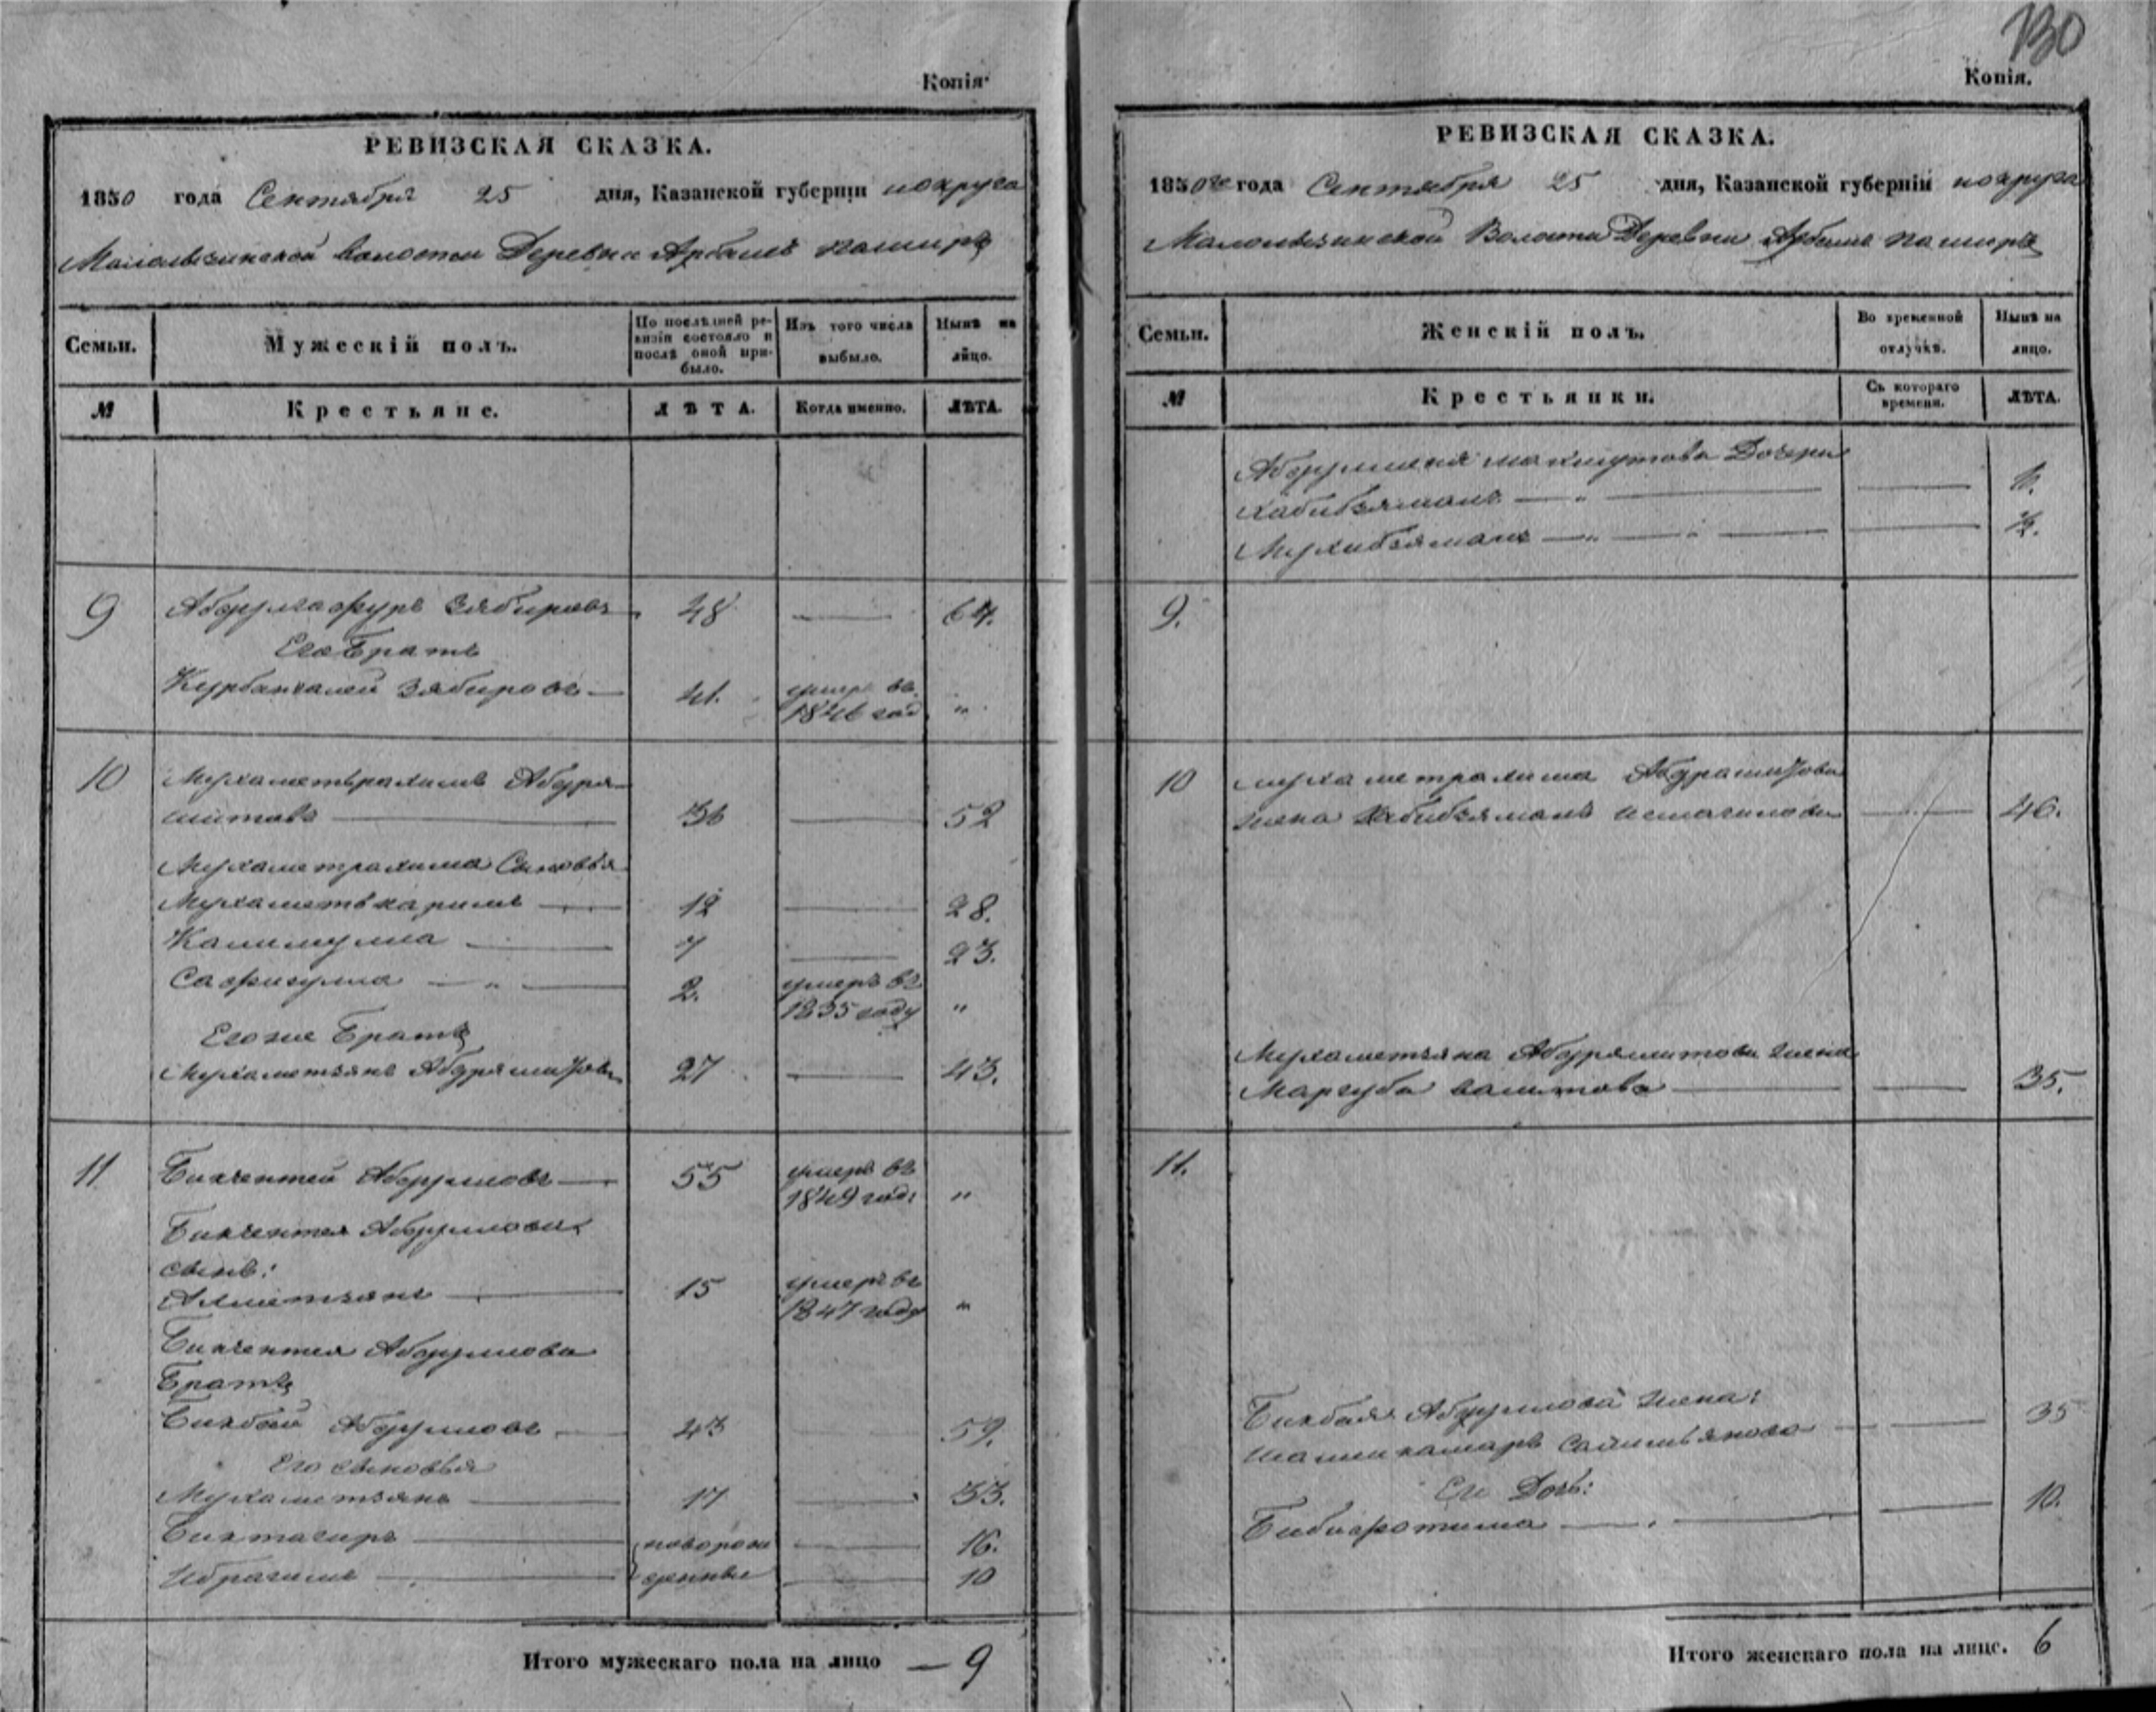 Копія.
РЕВИЗСКАЯ СКАЗКА.
1850 года Сентября 25 дня, Казанской губерніи
волости Деревни Арбашъ
Семьи. Мужескій полъ. По послѣдней ревизіи состояло и послѣ оной прибыло. Изъ того числа выбыло. Нынѣ на лицо.
№ Крестьяне. ЛѢТА. Когда именно. ЛѢТА.
9 Абдулгафуръ Зябировъ — 48 — 64.
Его Братъ
Курбангалей Зябировъ — 41. умеръ въ 1846 год "
10 Мухаметьрахимъ Абдря-
шитовъ — 36 — 52
Мухаметрахима Сыновья
Мухаметькаримъ — 12 — 28.
Калимулла — 7 — 23.
Сафиулла — " — 2. умеръ въ 1835 году "
Его же Братъ
Мухаметзянъ Абдряшитовъ 27 — 43.
11 Бикчентей Абдуловъ — 55 умеръ въ 1849 годе "
Бикчентея Абдулова
сынъ:
Ахметзянъ — 15 умеръ въ 1847 году "
Бикчентея Абдулова
Братъ
Бикбай Абдуловъ — 43 59.
Его сыновья
Мухаметзянъ — 17 — 33.
Биктагиръ — новорож — 16.
Ибрагимъ — денные — 10
Итого мужескаго пола на лицо — 9
130
Копія.
РЕВИЗСКАЯ СКАЗКА.
1850го года Сентября 25 дня, Казанской губерніи
Волости Деревни Арбашъ
Семьи. Женскій полъ. Во временной отлучкѣ. Нынѣ на лицо.
№ Крестьянки. Съ котораго времени. ЛѢТА.
Дочери
Хабибзямалъ — " — — 11.
— " — " — — ½.
9.
10 Мухаметрахима Абдрашитова
жена Хабибзямалъ Исмагилова — 46.
Мухаметзяна Абдряшитова жена
Маргуба Валитова — — 35.
11.
Бикбая Абдулова жена:
— — 35
Его Дочь:
Бибифатима — — 10.
Итого женскаго пола на лице. 6